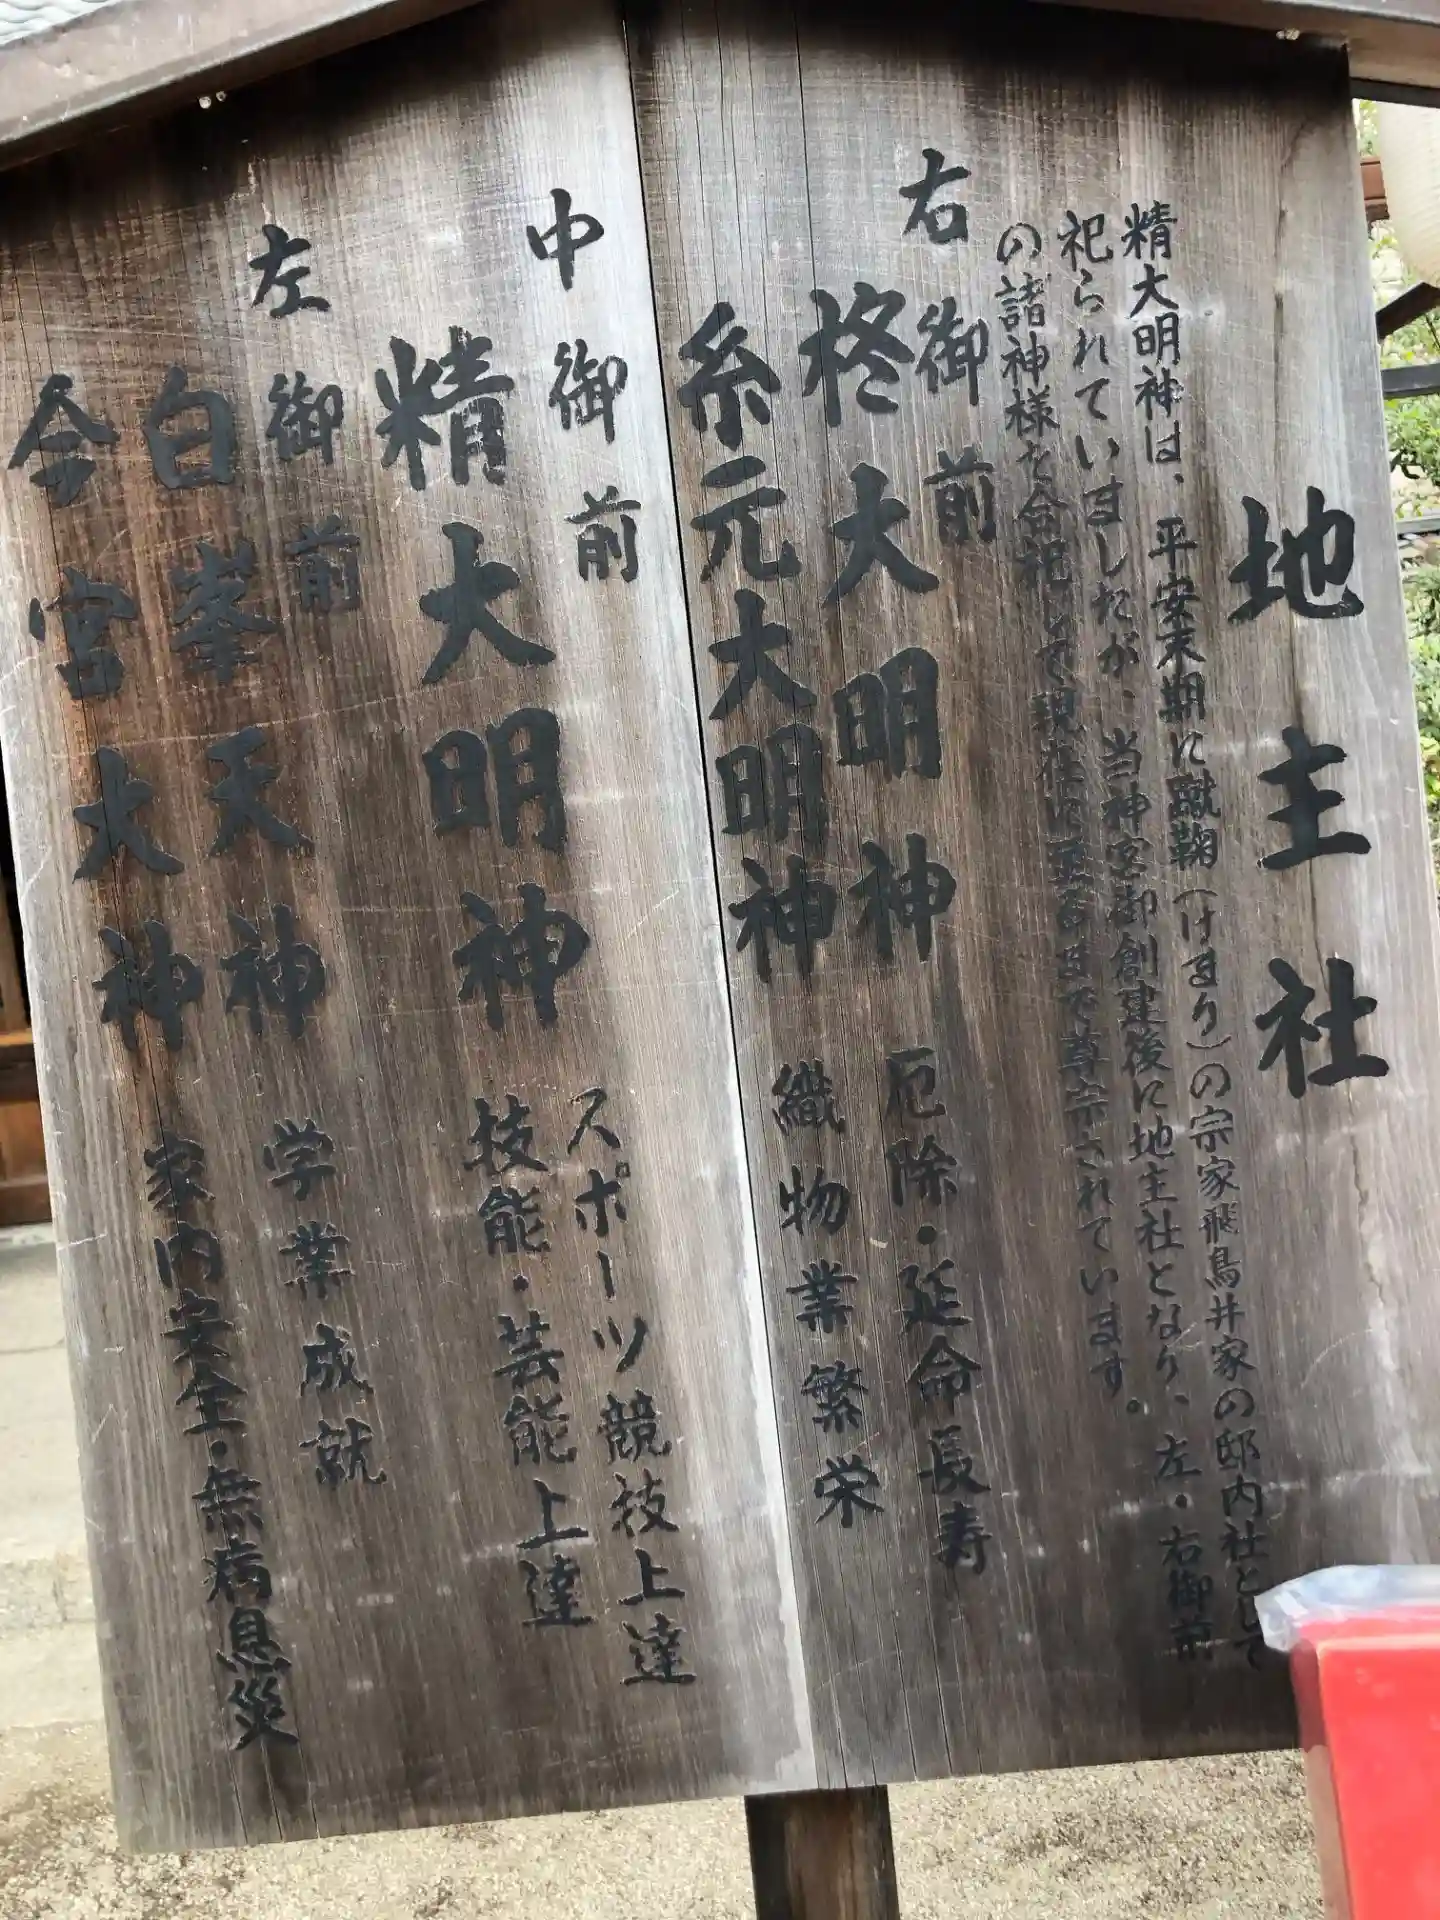 地主社
精大明神は、平安末期に蹴鞠(けまり)の宗家飛鳥井家の邸内社として
祀られていましたが、当神宮御創建後に地主社となり、左・右御前
の諸神様を合祀して現在に至るまで尊崇されています。
右御前
柊大明神 厄除・延命長寿
糸元大明神 織物業繁栄
中御前
精大明神 スポーツ競技上達
技能・芸能上達
左御前
白峯天神 学業成就
今宮大神 家内安全・無病息災